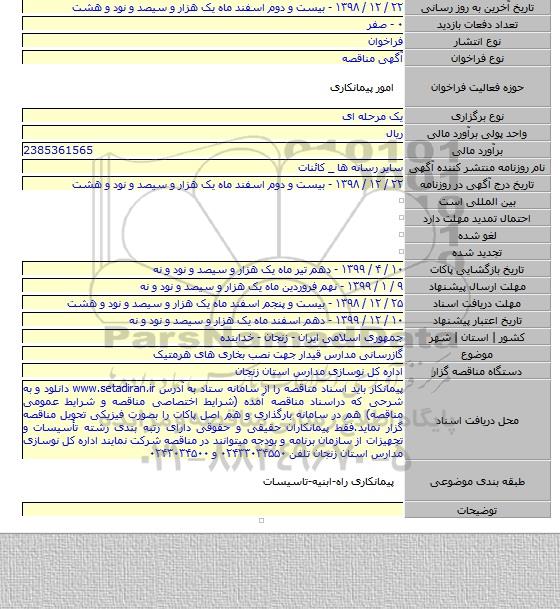 تاریخ آخرین به روز رسانی ۲۲ / ۱۲ / ۱۳۹۸ - بیست و دوم اسفند ماه یک هزار و سیصد و نود و هشت
تعداد دفعات بازدید ۰ - صفر
نوع انتشار فراخوان
نوع فراخوان آگهی مناقصه
حوزه فعالیت فراخوان امور پیمانکاری
نوع برگزاری یک مرحله ای
واحد پولی برآورد مالی ریال
برآورد مالی 2385361565
نام روزنامه منتشر کننده آگهی سایر رسانه ها _ کائنات
تاریخ درج آگهی در روزنامه ۲۲ / ۱۲ / ۱۳۹۸ - بیست و دوم اسفند ماه یک هزار و سیصد و نود و هشت
بین المللی است
احتمال تمدید مهلت دارد
لغو شده
تجدید شده
تاریخ بازگشایی پاکات ۱۰ / ۴ / ۱۳۹۹ - دهم تیر ماه یک هزار و سیصد و نود و نه
مهلت ارسال پیشنهاد ۹ / ۱ / ۱۳۹۹ - نهم فروردین ماه یک هزار و سیصد و نود و نه
مهلت دریافت اسناد ۲۵ / ۱۲ / ۱۳۹۸ - بیست و پنجم اسفند ماه یک هزار و سیصد و نود و هشت
تاریخ اعتبار پیشنهاد ۱۰ / ۱۲ / ۱۳۹۹ - دهم اسفند ماه یک هزار و سیصد و نود و نه
کشور | استان | شهر جمهوری اسلامی ایران - زنجان - خدابنده
موضوع گازرسانی مدارس قیدار جهت نصب بخاری های هرمتیک
دستگاه مناقصه گزار اداره کل نوسازی مدارس استان زنجان
محل دریافت اسناد پیمانکار باید اسناد مناقصه را از سامانه ستاد به آدرس www.setadiran.ir دانلود و به
شرحی که دراسناد مناقصه آمده (شرایط اختصاصی مناقصه و شرایط عمومی
مناقصه) هم در سامانه بارگذاری و هم اصل پاکات را بصورت فیزیکی تحویل مناقصه
گزار نماید.فقط پیمانکاران حقیقی و حقوقی دارای رتبه بندی رشته تأسیسات و
تجهیزات از سازمان برنامه و بودجه میتوانند در مناقصه شرکت نمایند اداره کل نوسازی
مدارس استان زنجان تلفن ۰۲۴۳۳۰۳۴۵۵۰ و ۰۲۴۳۳۰۳۴۵۰۰
طبقه بندی موضوعی پیمانکاری راه-ابنیه-تاسیسات
توضیحات